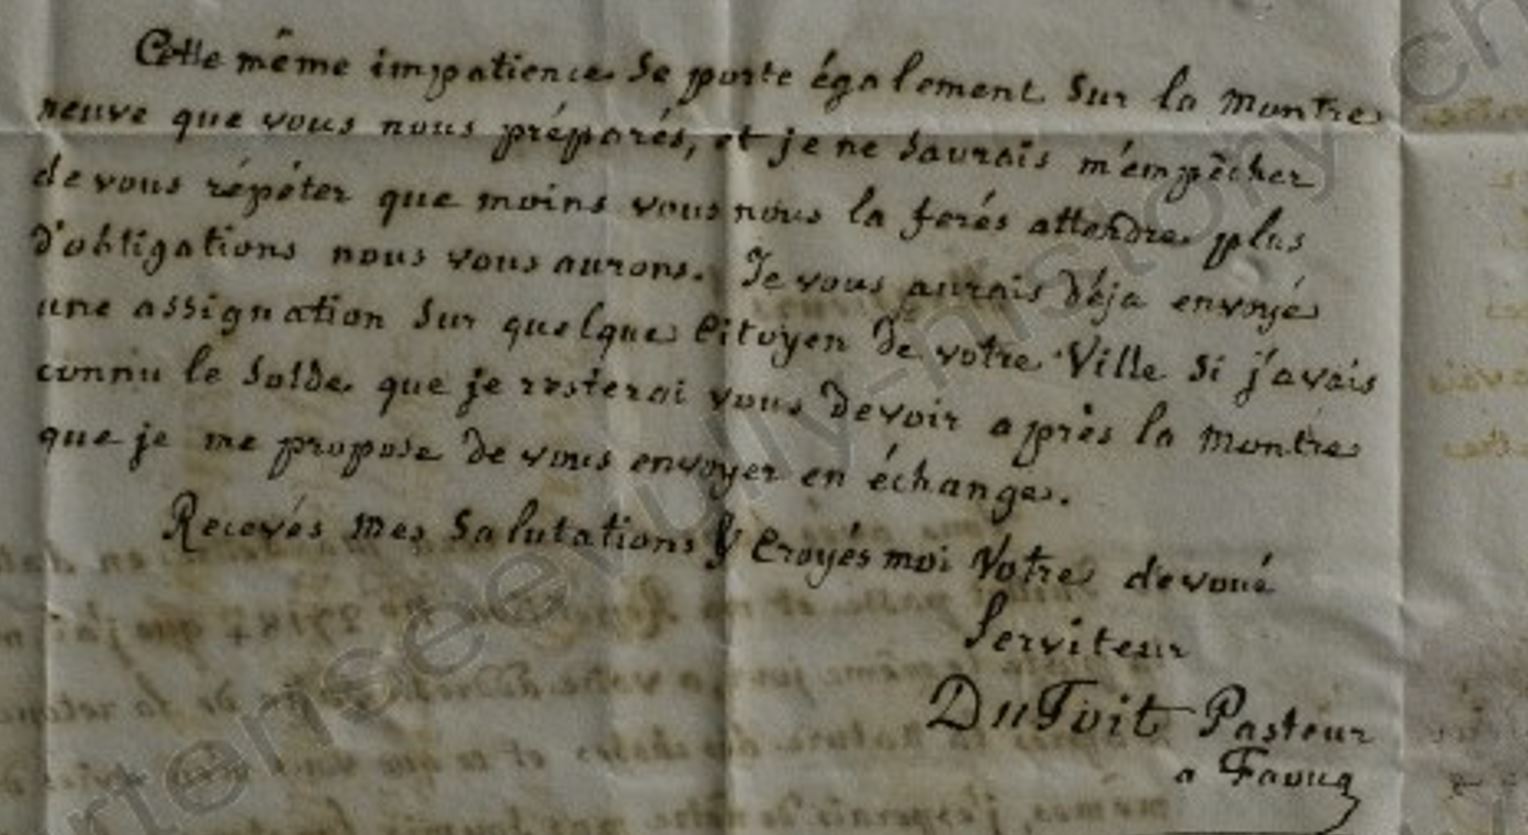 Cette même impatience se porte également sur la montre
neuve que vous nous préparés, et je ne saurais m'empêcher
de vous répéter que moins vous nous la ferés attendre plus
d'obligations nous vous aurons. Je vous aurais déja envoyé
une assignation sur quelque Citoyen de votre Ville si j'avais
connu le solde que je resterai vous devoir après la montre
que je me propose de vous envoyer en échange.
Recevés mes salutations & Croyés moi Votre devoué
Serviteur
DuToit Pasteur
a Faoug